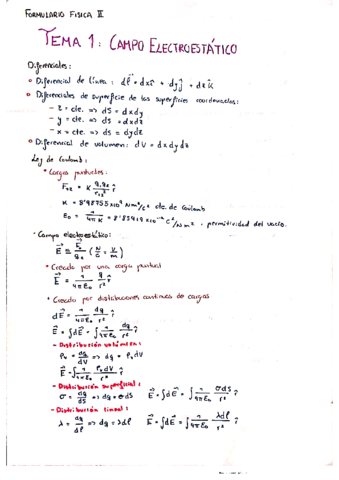 FORMULARIO FISICA II
TEMA 1: CAMPO ELECTROESTÁTICO
Diferenciales:
Diferencial de línea: dl⃗ = dx î + dy ĵ + dz k̂
Diferenciales de superficie de las superficies coordenadas:
- z = cte. => dS = dxdy
- y = cte. => dS = dxdz
- x = cte. => dS = dydz
Diferencial de volumen: dV = dx dy dz
Ley de Coulomb:
* Cargas puntuales:
K = 8'98755 x10⁹ Nm²/C² cte. de Coulomb
permitividad del vacío.
* Campo electroestático:
* Creado por una carga puntual
E⃗ = 1/4πε₀ q/r² r̂
* Creado por distribuciones continuas de cargas
dE⃗ = 1/4πε₀ dq/r² r̂
E⃗ = ∫dE⃗ = ∫ 1/4πε₀ dq/r² r̂
- Distribución volúmica:
ρᵥ = dq/dV => dq = ρᵥ dV
E⃗ = ∫ 1/4πε₀ ρᵥdV/r² r̂
- Distribución superficial:
σ = dq/dS => dq = σ dS E⃗ = ∫dE⃗ = ∫ 1/4πε₀ σdS/r² r̂
- Distribución lineal:
λ = dq/dl => dq = λdl E⃗ = ∫dE⃗ = ∫ 1/4πε₀ λdl/r² r̂